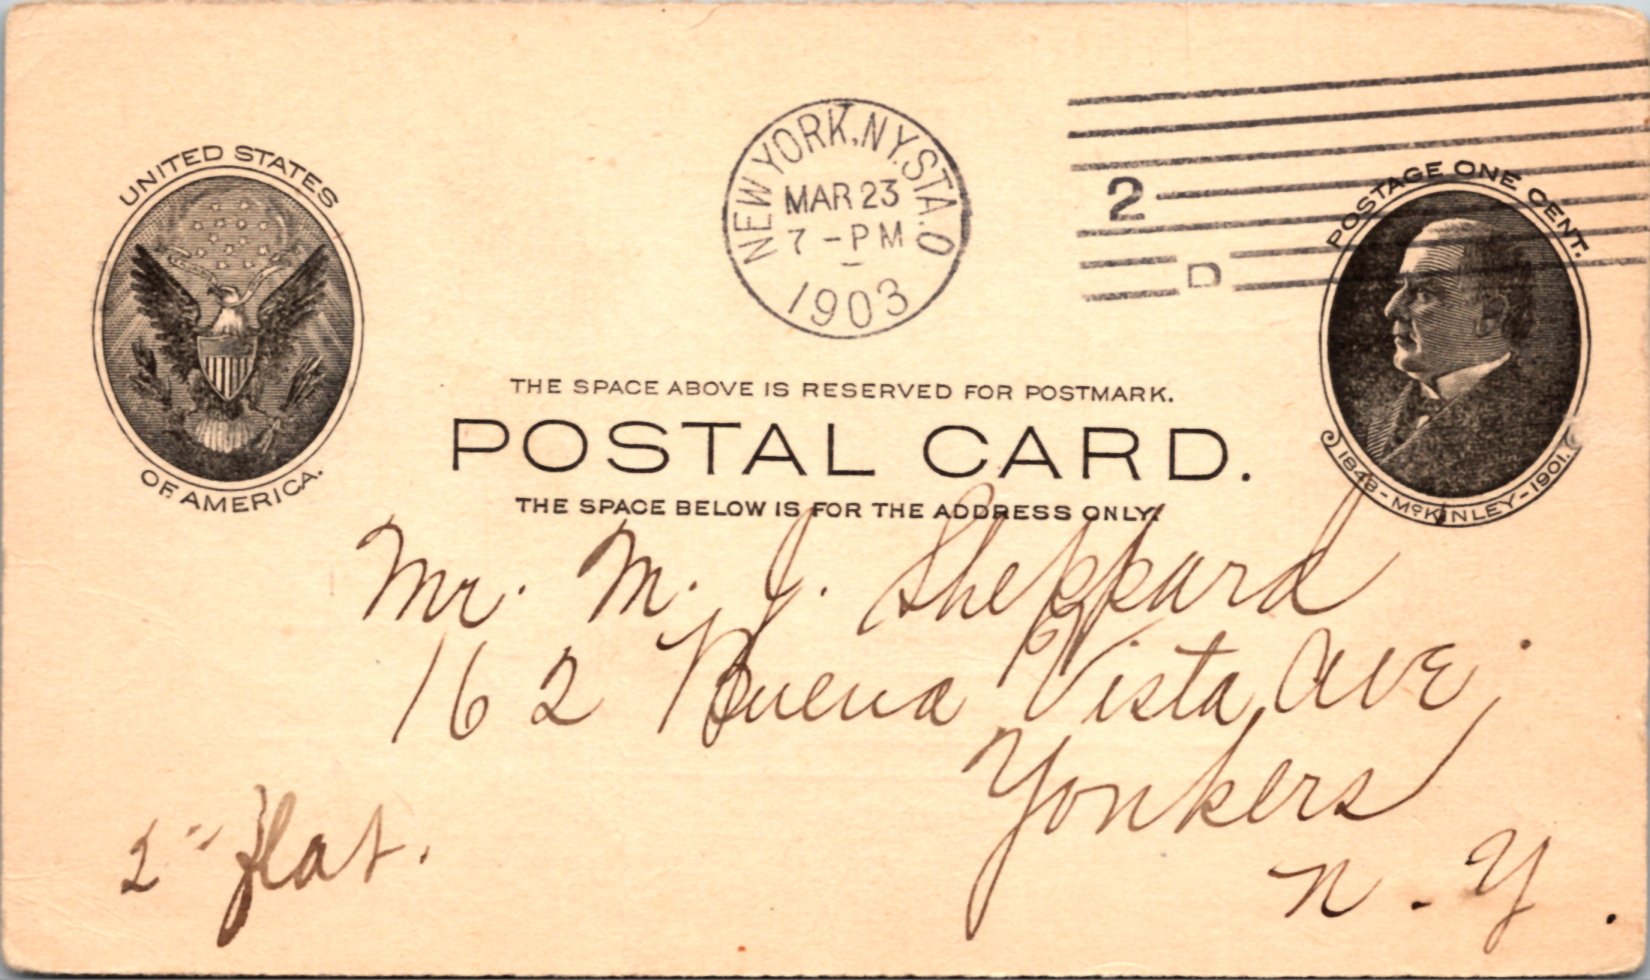 UNITED STATES
OF AMERICA.
NEW YORK, N.Y. STA. O
MAR 23
7 - PM
1903
2
D
POSTAGE ONE CENT.
1843 - McKINLEY - 1901.
THE SPACE ABOVE IS RESERVED FOR POSTMARK.
POSTAL CARD.
THE SPACE BELOW IS FOR THE ADDRESS ONLY.
Mr. M. J. Sheppard
162 Buena Vista Ave,
Yonkers
N. Y.
2" flat.